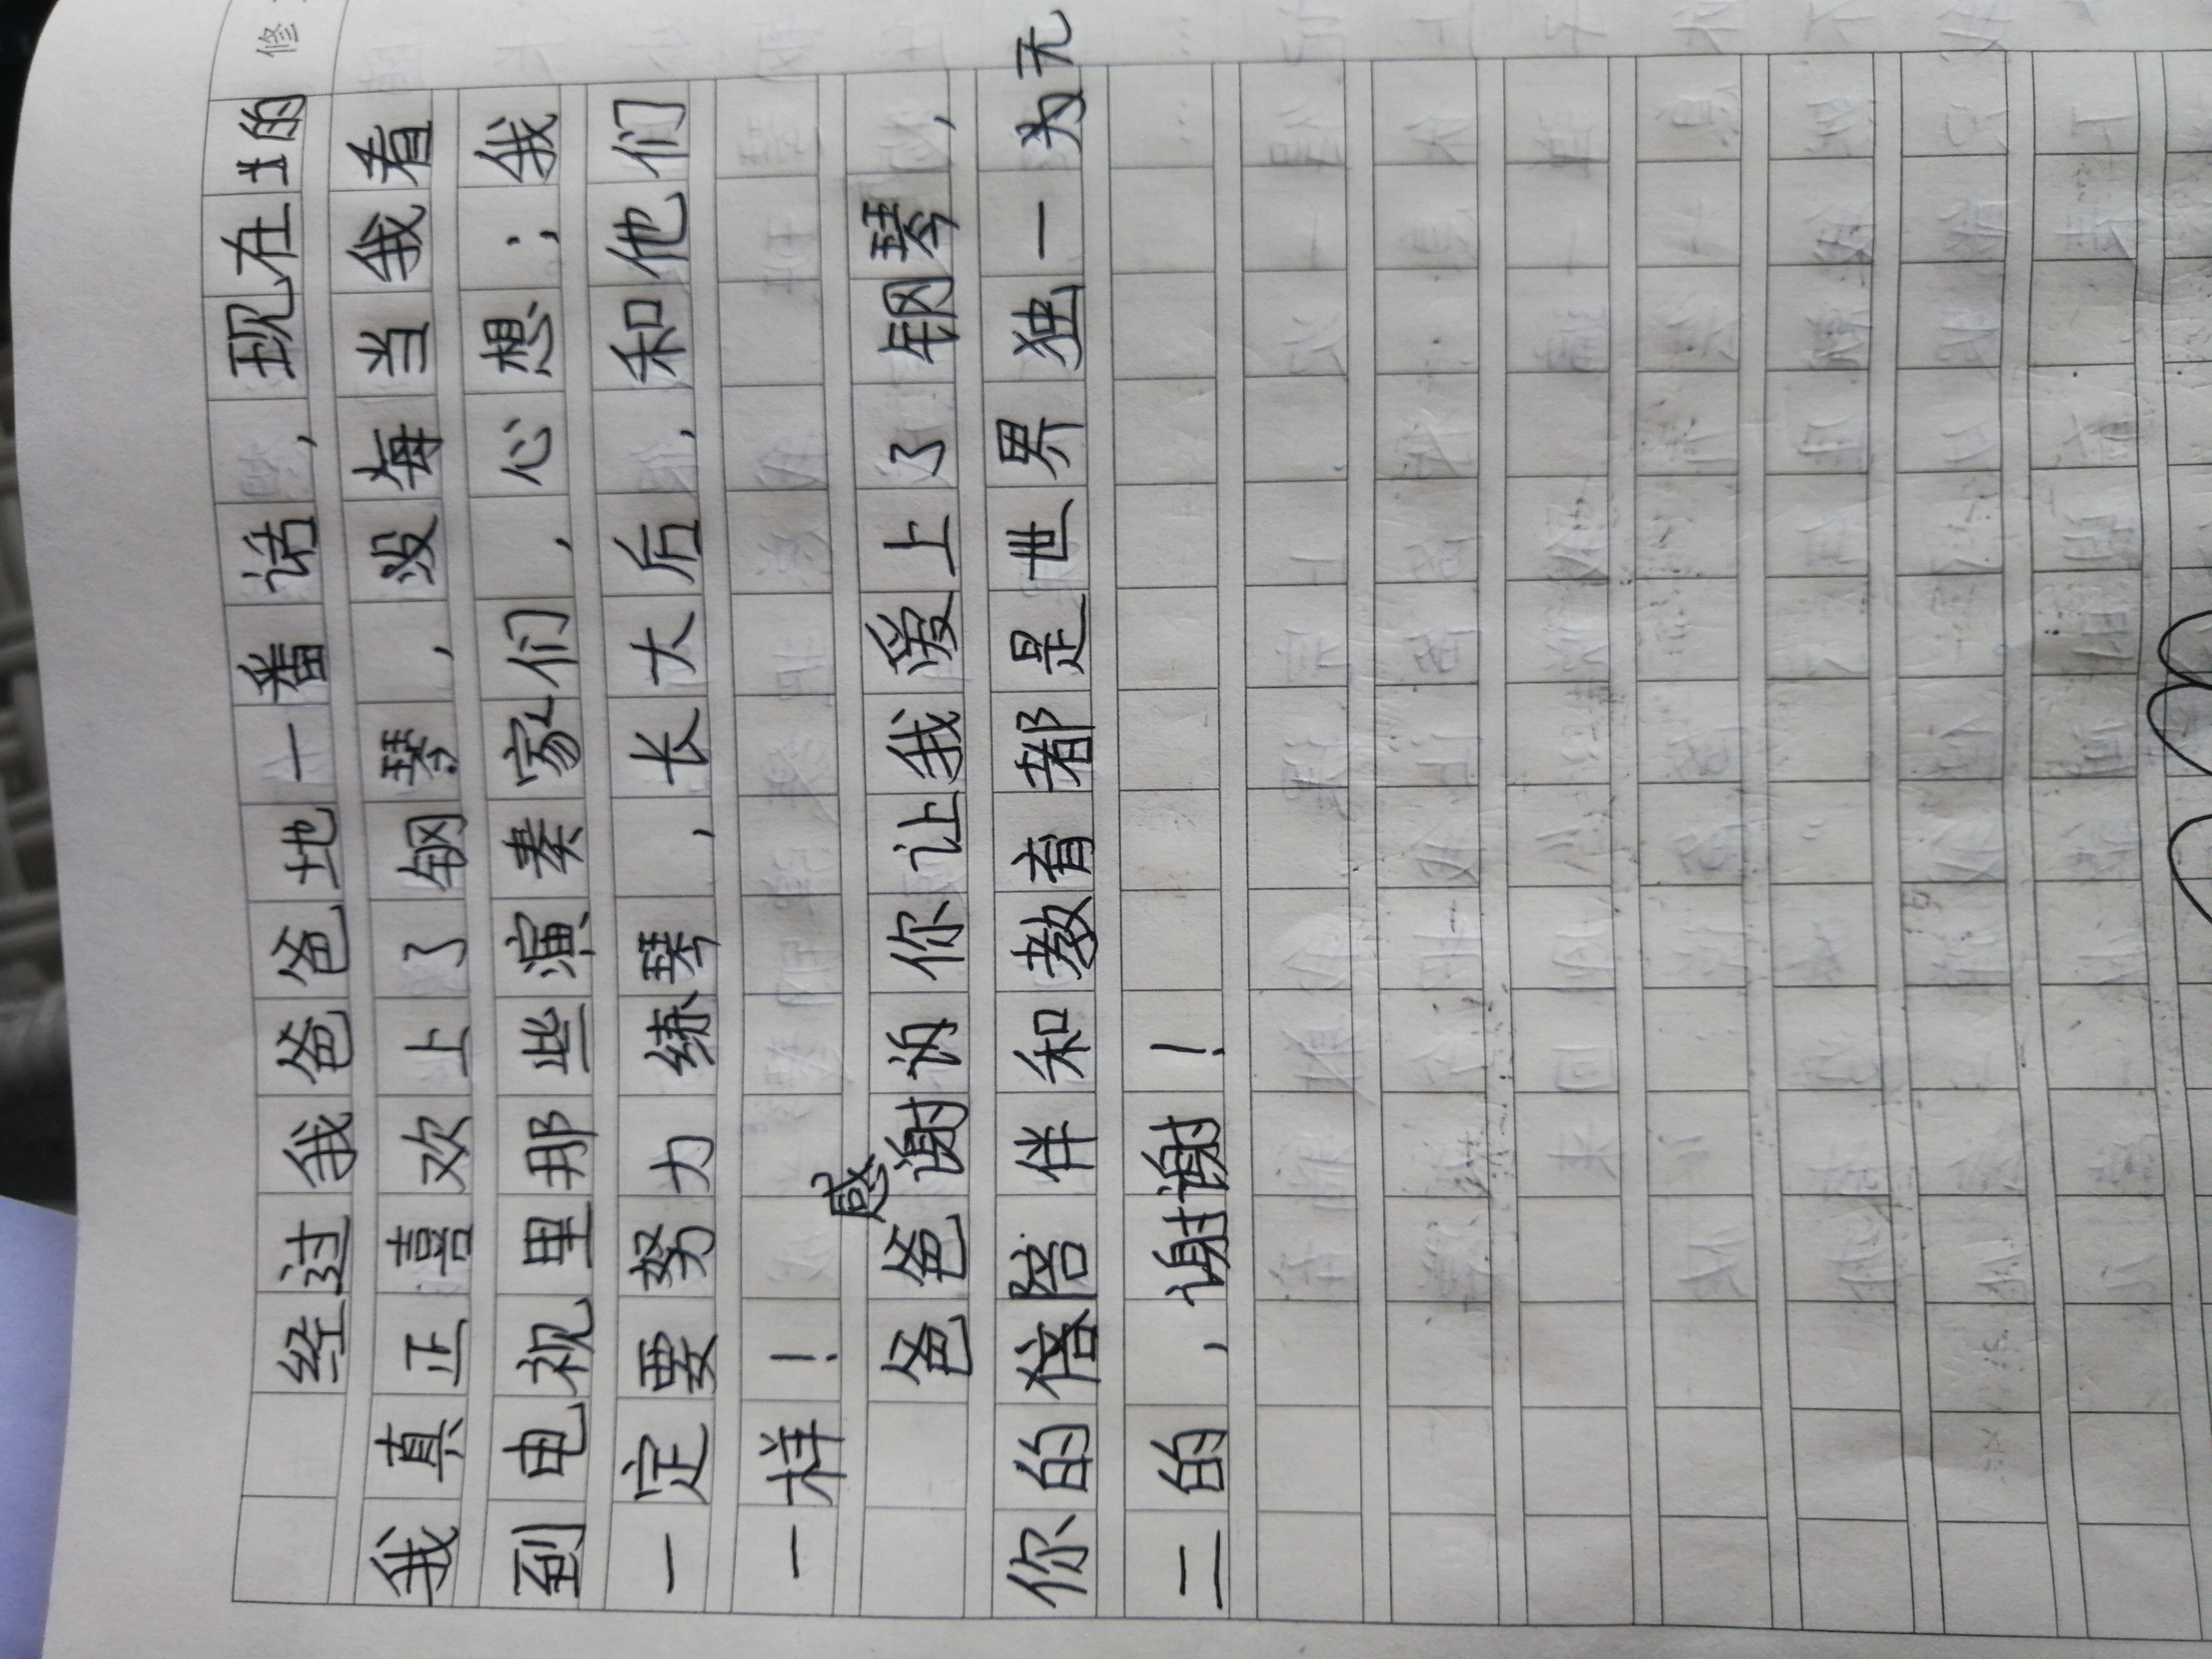 修
经过我爸爸地一番话，现在的
我真正喜欢上了钢琴，没每当我看
到电视里那些演奏家们，心想：我
一定要努力练琴，长大后，和他们
一样！
爸爸感谢你让我爱上了钢琴，
你的陪伴和教育都是世界独一为无
二的，谢谢！